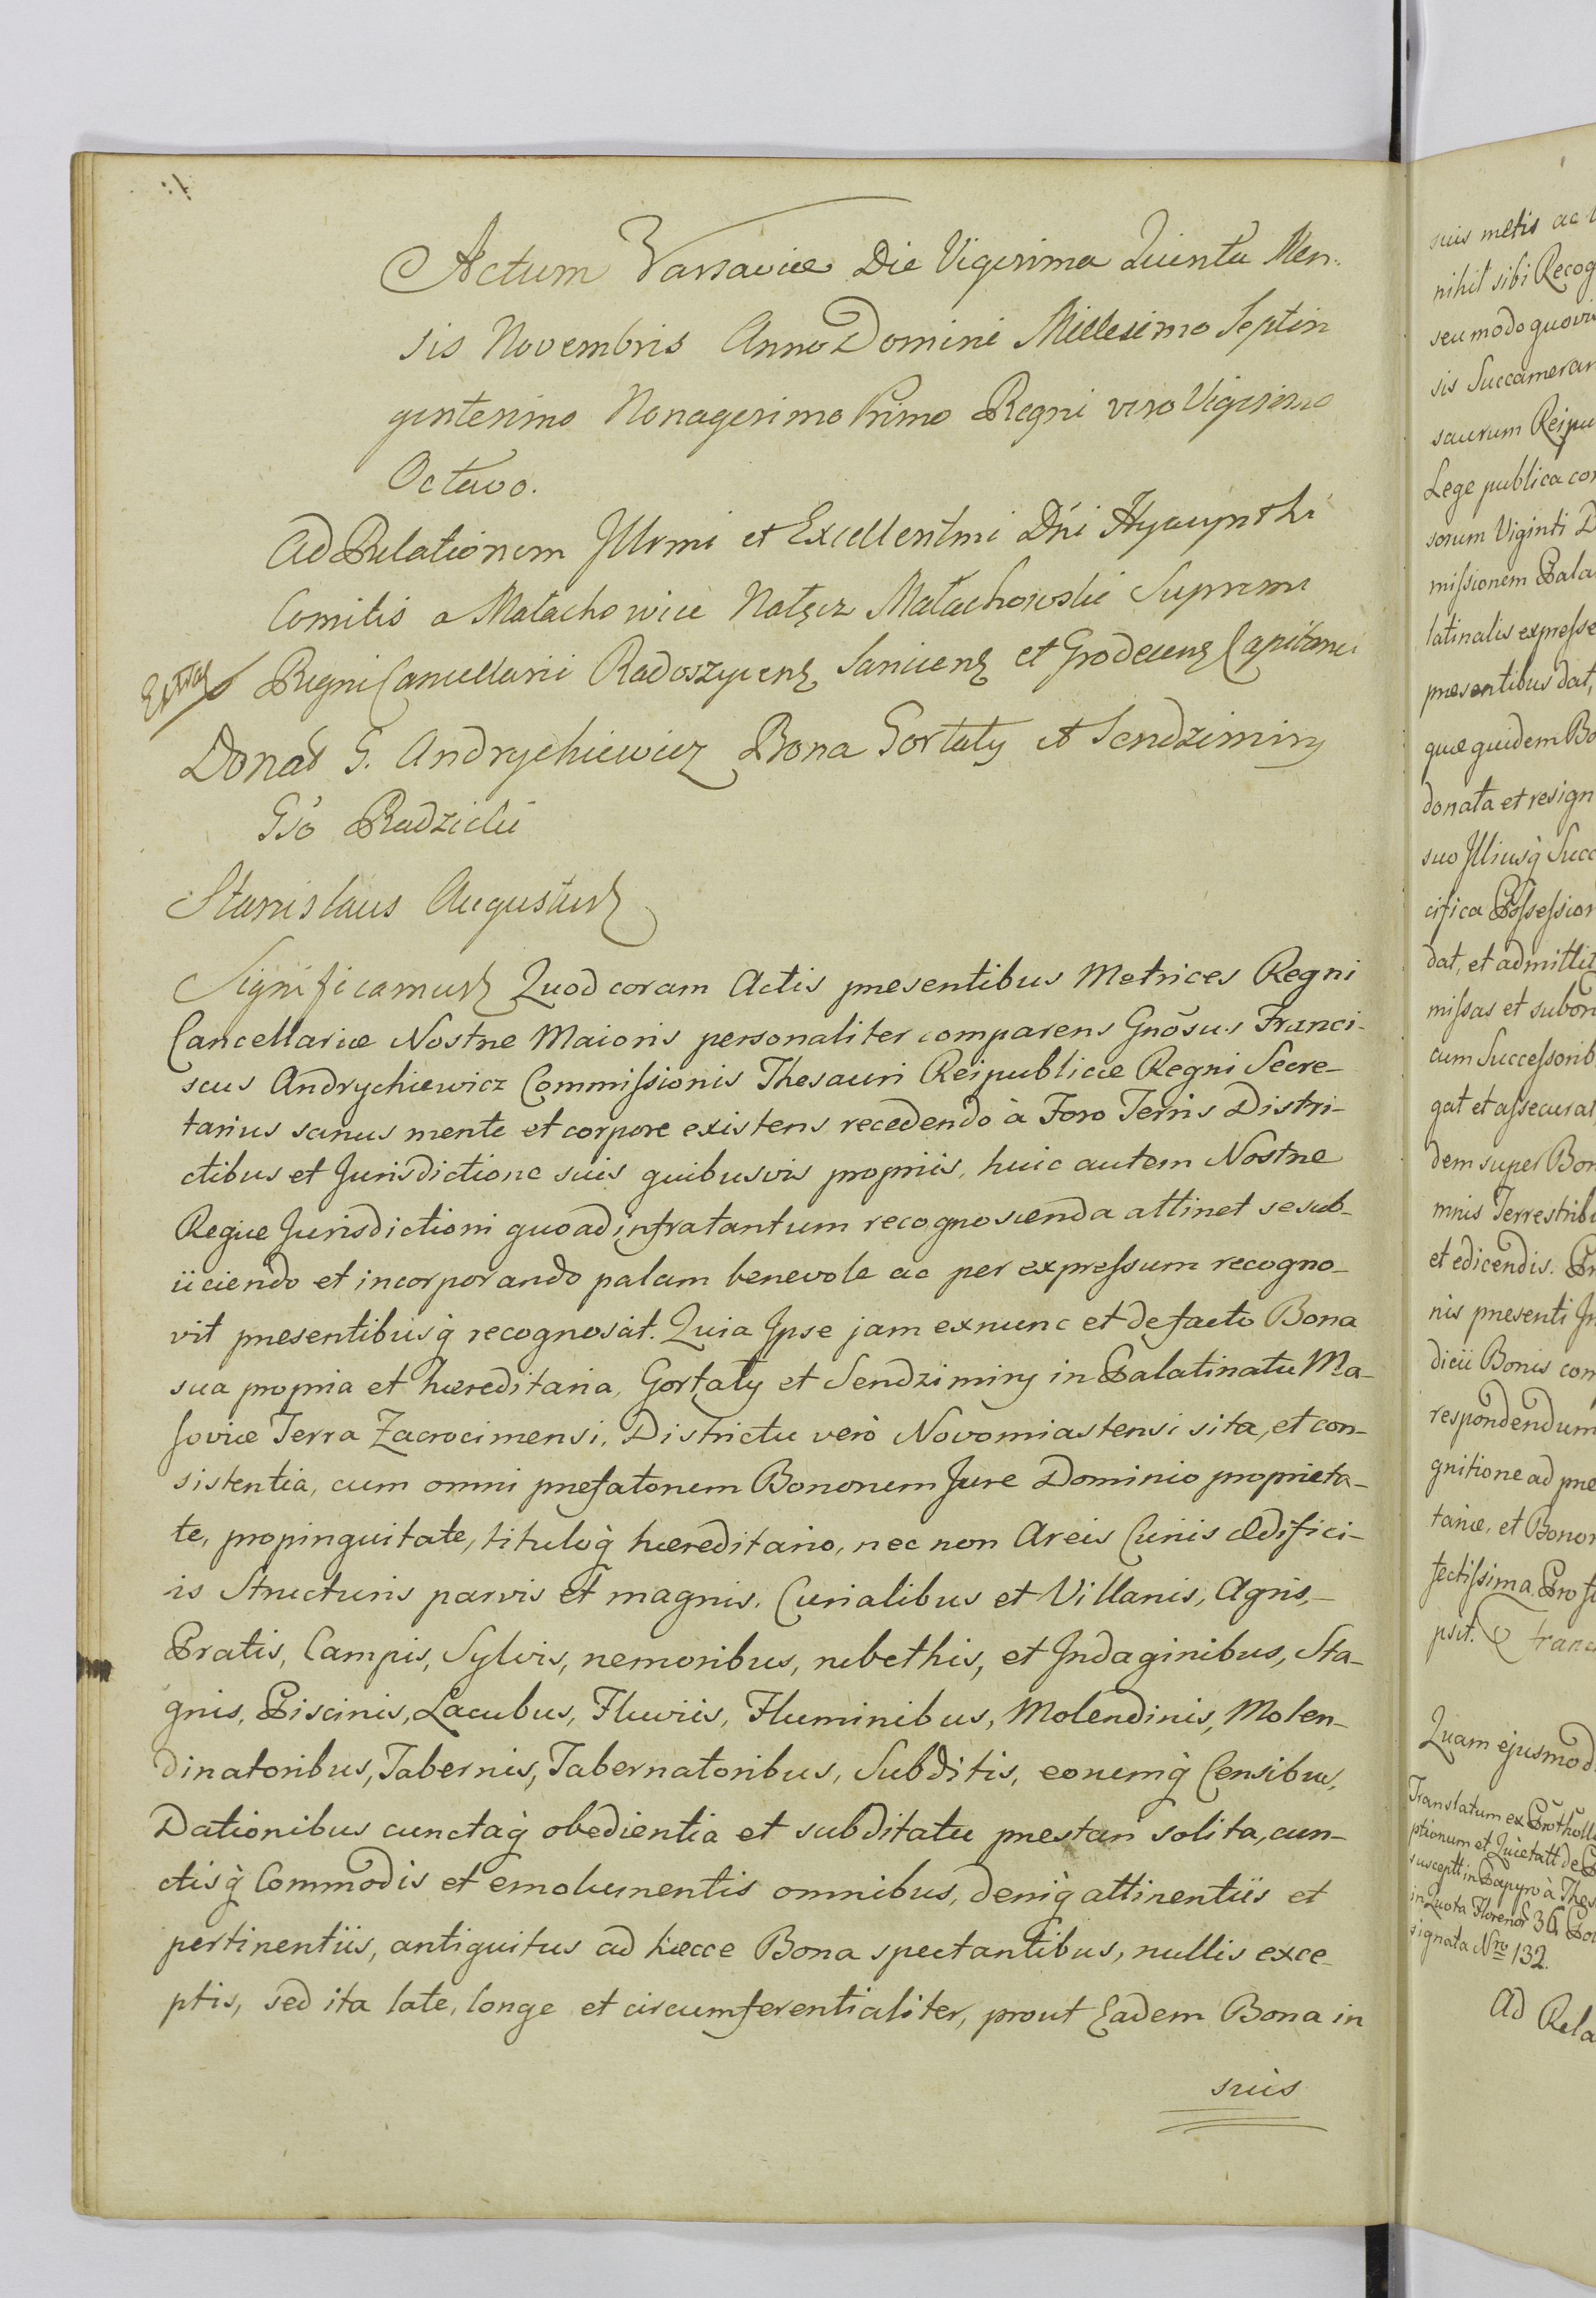 Actum Varsaviæ Die Vigesima Quinta Men-
sis Novembris Anno Domini Millesimo Septin
gentesimo Nonagesimo Primo Regni vero Vigesimo
Octavo.
Ad Relationem Jllrmi et Excellentmi Dni Hyacynthi
Comitis a Małachowice Nałęcz Małachowski Supremi
Regni Cancellarii Radoszycens Saniecens et Grodecens Capitanei
Extrad
Donat G. Andrychiewicz Bona Gortaty et Sendzimiry
Gso Radzicki
Stanislaus Augustus
Significamus Quod coram Actis præsentibus Metrices Regni
Cancellariæ Nostræ Maioris personaliter comparens Gnōsus Franci-
scus Andrychiewicz Commissionis Thesauri Reipublicæ Regni Secre-
tarius sanus mente et corpore existens recedendo à Foro Terris Distri-
ctibus et Jurisdictione suis quibusvis propriis, huic autem Nostræ
Regiæ Jurisdictioni quoad infratantum recognoscenda attinet se sub-
iiciendo et incorporando palam benevole ac per expressum recogno-
vit præsentibusq̀ recognoscit. Quia Jpse jam exnunc et de facto Bona
sua propria et hæreditaria, Gortaty et Sendzimiry in Palatinatu Ma-
soviæ Terra Zacrocimensi, Districtu verò Novomiastensi sita, et con-
sistentia, cum omni præfatorum Bonorum Jure Dominio proprieta-
te, propinquitate, tituloq̀ hæreditario, nec non Areis Curiis ædifici-
is Structuris parvis et magnis, Curialibus et Villanis, Agris,-
Pratis, Campis, Sylvis, nemoribus, rubethis, et Jndaginibus, Sta-
gnis, Piscinis, Lacubus, Fluviis, Fluminibus, Molendinis, Molen-
dinatoribus, Tabernis, Tabernatoribus, Subditis, eorumq̀ Censibus,
Dationibus cunctaq̀ obedientia et subditatu præstari solita, cun-
ctisq̀ Commodis et emolumentis omnibus, deniq̀ attinentiis et
pertinentiis, antiquitus ad hæcce Bona spectantibus, nullis exce-
ptis, sed ita late, longe et circumferentialiter, prout Eadem Bona in
suis
suis metis ac
nihil sibi Recog
seu modo quovis
sis Succamerar
saurum Reipu
Lege publica con
sorum Viginti D
missionem Pala
latinalis expresse
præsentibus dat,
quæ quidem Bo
donata et resign
suo Jlliusq̀ Succ
cifica Possession
dat, et admittit
missas et subor
cum Successorib
gat et assecurat
dem super Bon
mnis Terrestrib
et edicendis. Pr
nis præsenti Jn
dicii Bonis com
respondendum
gnitione ad præ
tariæ, et Bonor
fectissima. Pro
psit. Franc
Quam ejusmod
Translatum ex Protholl
ptionum et Quietatt de
susceptt in Papyro à Thes
in Quota Florenor 36 Pol
signata Nro 132.
Ad Rela